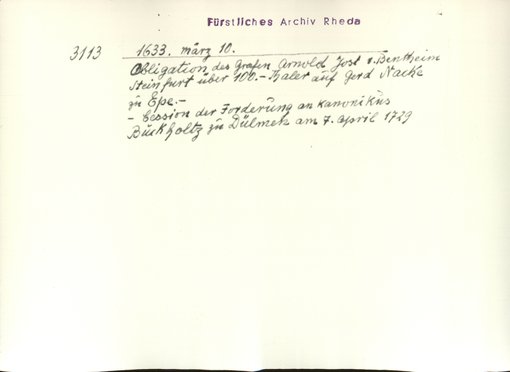 Fürstliches Archiv Rheda
3113 1633. märz 10.
Obligation des Grafen Arnold Jost v. Bentheim
Steinfurt über 100.- Thaler auf Gerd Nacke
zu Epe.-
- Cession der Forderung an Kanonikus
Buckholtz zu Dülmen am 7. April 1729